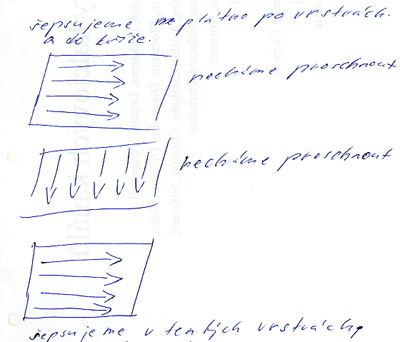 šepsujeme na plátno po vrstvách.
a do kříže.
necháme proschnout
necháme proschnout
šepsujeme v tenkých vrstvách,